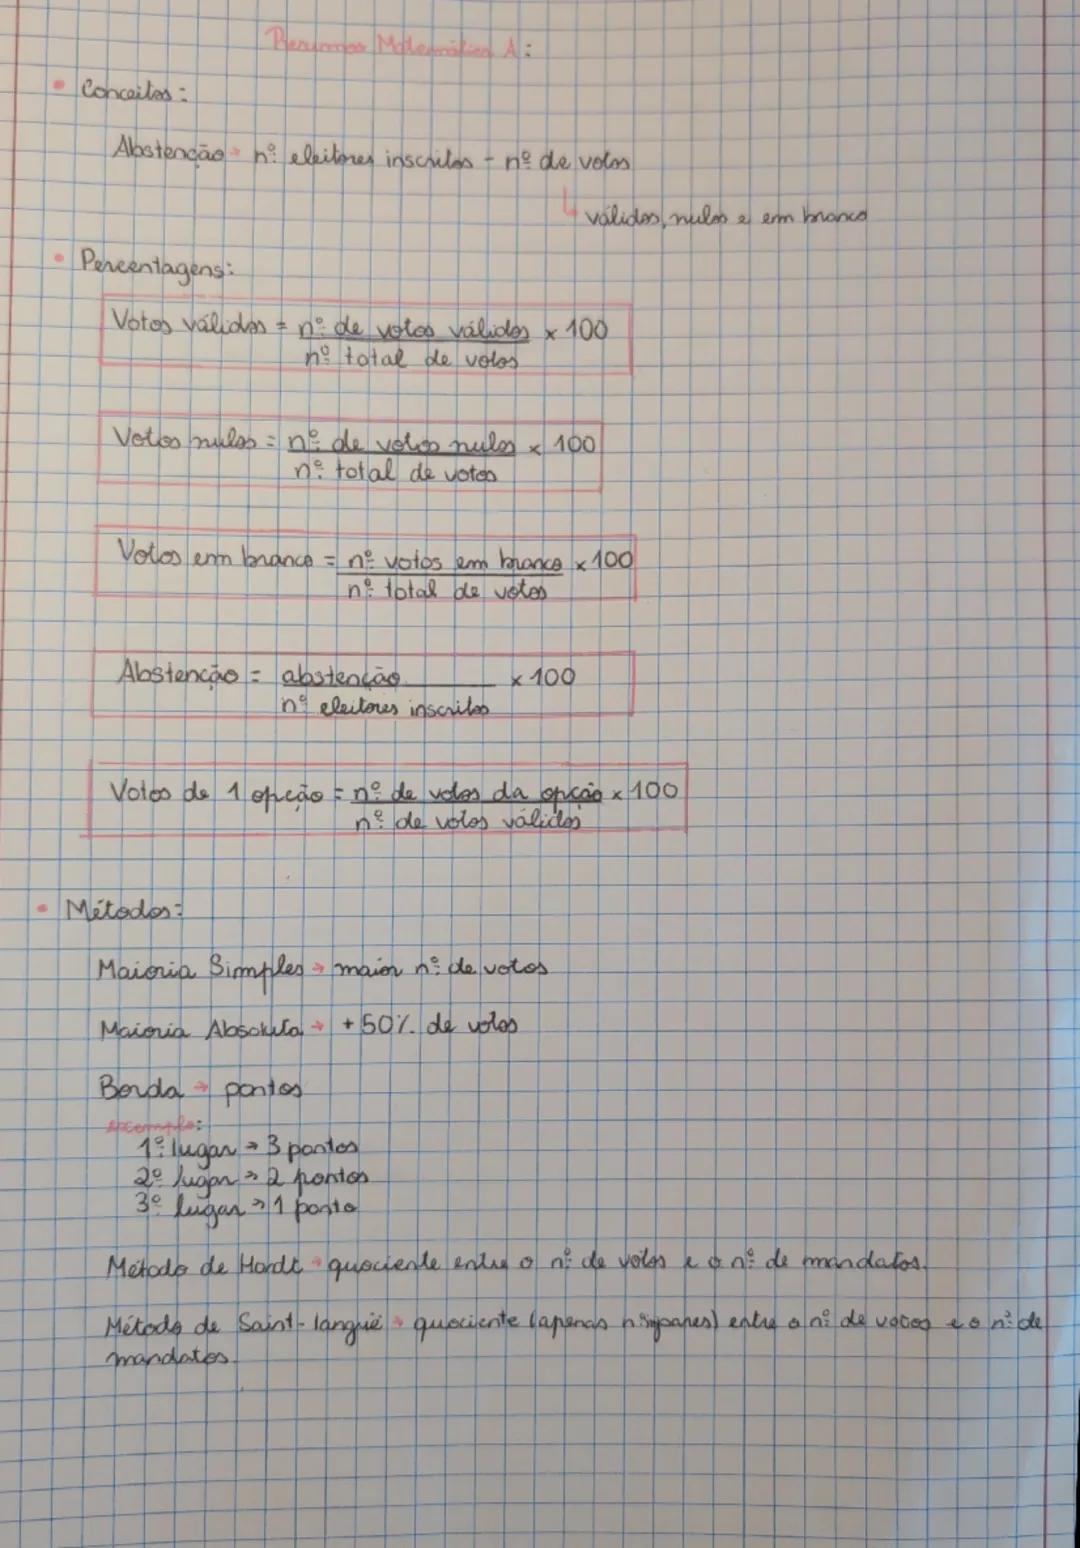 Resumos Matemática A:
• Conceitos:
Abstenção → nº eleitores inscritos - nº de votos
↳ válidos, nulos e em branco
• Percentagens:
Votos válidos = nº de votos válidos x 100
nº total de votos
Votos nulos = nº de votos nulos x 100
nº total de votos
Votos em branco = nº votos em branco x 100
nº total de votos
Abstenção = abstenção x 100
nº eleitores inscritos
Votos de 1 opção = nº de votos da opção x 100
nº de votos válidos
• Métodos:
Maioria Simples → maior nº de votos
Maioria Absoluta → +50% de votos
Borda → pontos
exemplo:
1º lugar → 3 pontos
2º lugar → 2 pontos
3º lugar → 1 ponto
Método de Hondt → quociente entre o nº de votos e o nº de mandatos.
Método de Saint-langué → quociente (apenas nºs ímpares) entre o nº de votos e o nº de
mandatos.